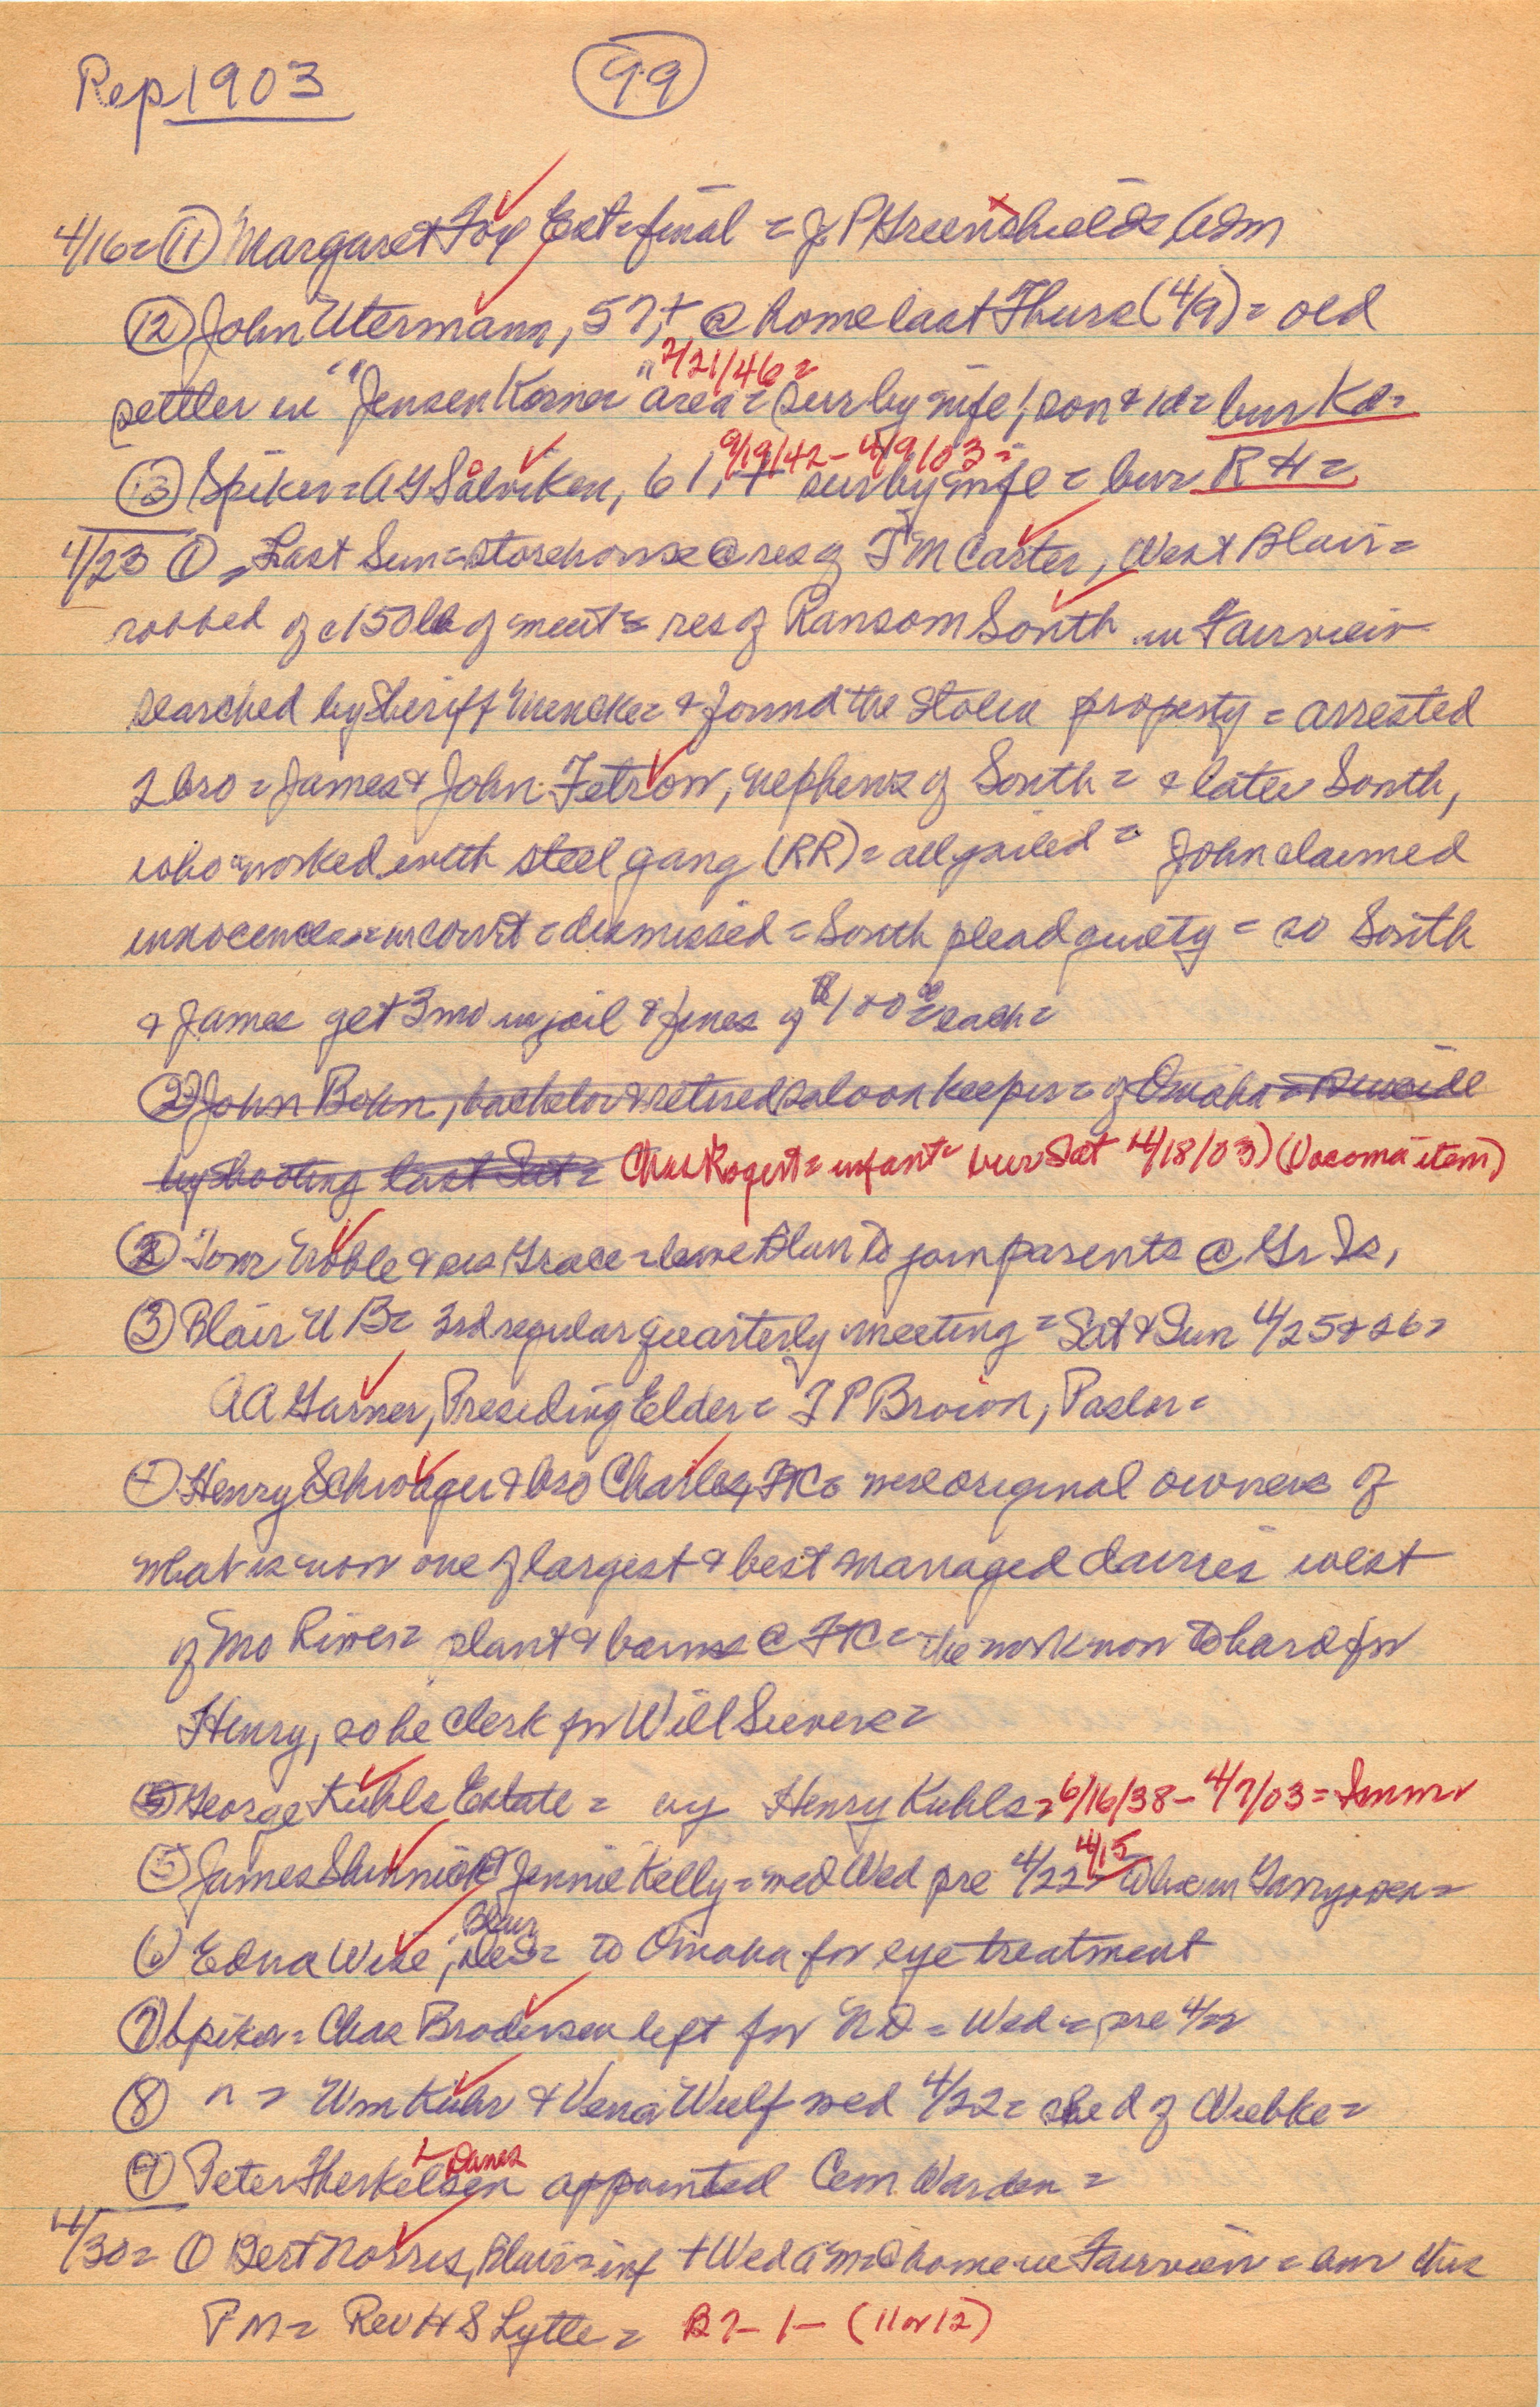 Rep 1903
99
4/16= 11 Margaret Fox Est = final = J P Greenshields Adm
12 John Utermann, 57, + @ home last Thurs (4/9) = old
2/21/46 =
settler in "Jensen Korner" area = sur by wife, 1 son & 1d = bur Kd =
9/19/42 - 4/9/03 =
13 Spiker = A G Salviken, 61, + sur by wife = bur R H =
4/23 1 = Last Sun = storehouse @ res of T M Carter, West Blair =
robbed of c 150 lb of meat = res of Ransom South in Fairview
searched by Sheriff Mencke = & found the stolen property = arrested
2 bro = James & John Fetrow, nephews of South = & later South,
who worked with steel gang (RR) = all jailed = John claimed
innocence = in court = dismissed = South plead guilty = so South
& James get 3 mo in jail & fines of $100 00 each =
2 John Bohn, bachelor & retired saloon keeper = of Omaha = suicide
by shooting last Sat = Chas Rogert = infant = bur Sat 4/18/03) (Vacoma item)
2 Tom Noble & sis Grace = leave Blair to join parents @ Gr Is,
3 Blair U B = 3rd regular quarterly meeting = Sat & Sun 4/25 & 26 =
A A Garner, Presiding Elder = T P Brown, Pastor =
4 Henry Schwager & bro Charles, Ft C = were original owners of
what is now one of largest & best managed dairies west
of Mo River = plant & barns @ Ft C = the work now to hard for
Henry, so he clerk for Will Sievers =
George Kuhls Estate = by Henry Kuhls = 6/16/38 - 4/7/03 =
4/15
5 James & Jennie Kelly = wed Wed pre 4/22 =
Blair
6 Edna Wise, = to Omaha for eye treatment
7 Spiker = Chas Brodersen left for ND = Wed = pre 4/22
8 " = Wm Kuhr & Vena Wulf wed 4/22 = she d of Wiebke =
Danes
9 Peter Therkelsen appointed Cem Warden =
4/30 = 1 Bert Norris, Blair = inf + Wed a m @ home in Fairview = bur this
P M = Rev H S Lytle = B 7 - 1 - (11 or 12)